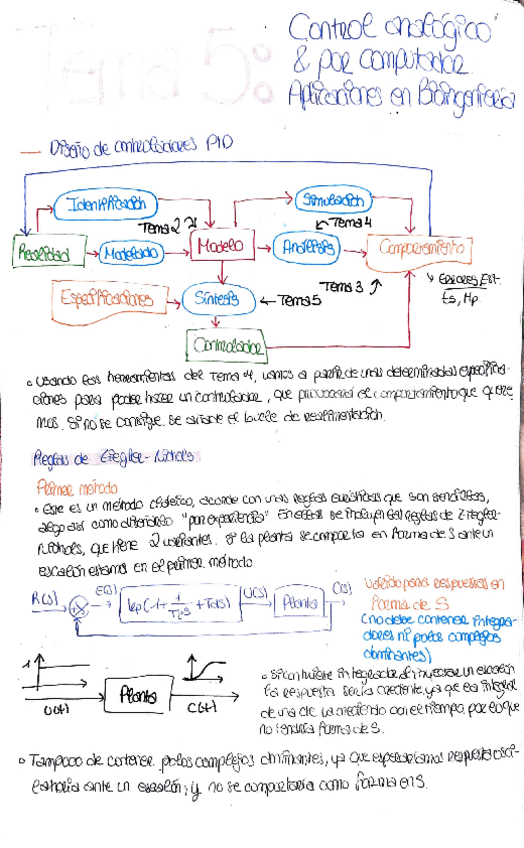 Tema 5:
Control analógico
& por computador.
Aplicaciones en Bioingeniería
— Diseño de controladores PID
Identificación
Simulación
Tema 2
Tema 4
Realidad
Modelado
Modelo
Análisis
Comportamiento
Errores Est.
Es, Mp
Tema 3
Especificaciones
Síntesis
← Tema 5
Controlador
• Usando las herramientas del Tema 4, vamos a partir de unas determinadas especifica-
ciones para poder hacer un controlador, que provocará el comportamiento que quere
mos. Si no se consigue se añade el bucle de realimentación.
Reglas de Ziegler-Nichols
Primer método
• Este es un método clásico, acorde con unas reglas que son sencillas,
algo así como diciendo "por experiencia" En estas se incluyen las reglas de Ziegler-
Nichols, que tiene 2 variantes. Si la planta se comporta en forma de S ante un
escalón estamos en el primer método.
R(s)
E(s)
Kp(1+ 1/Tis +Tds)
U(s)
Planta
C(s)
Válido para respuestas en
forma de S
(no debe contener integra-
dores ni polos complejos
dominantes)
1
U(t)
Planta
C(t)
• Si contuviese integrador al inyectar un escalón
la respuesta sería creciente, ya que la integral
de una cte va creciendo con el tiempo, por lo que
no tendría forma de S.
• Tampoco de contener polos complejos dominantes, ya que esperaríamos respuesta osci-
latoria ante un escalón, y no se comportaría como forma en S.